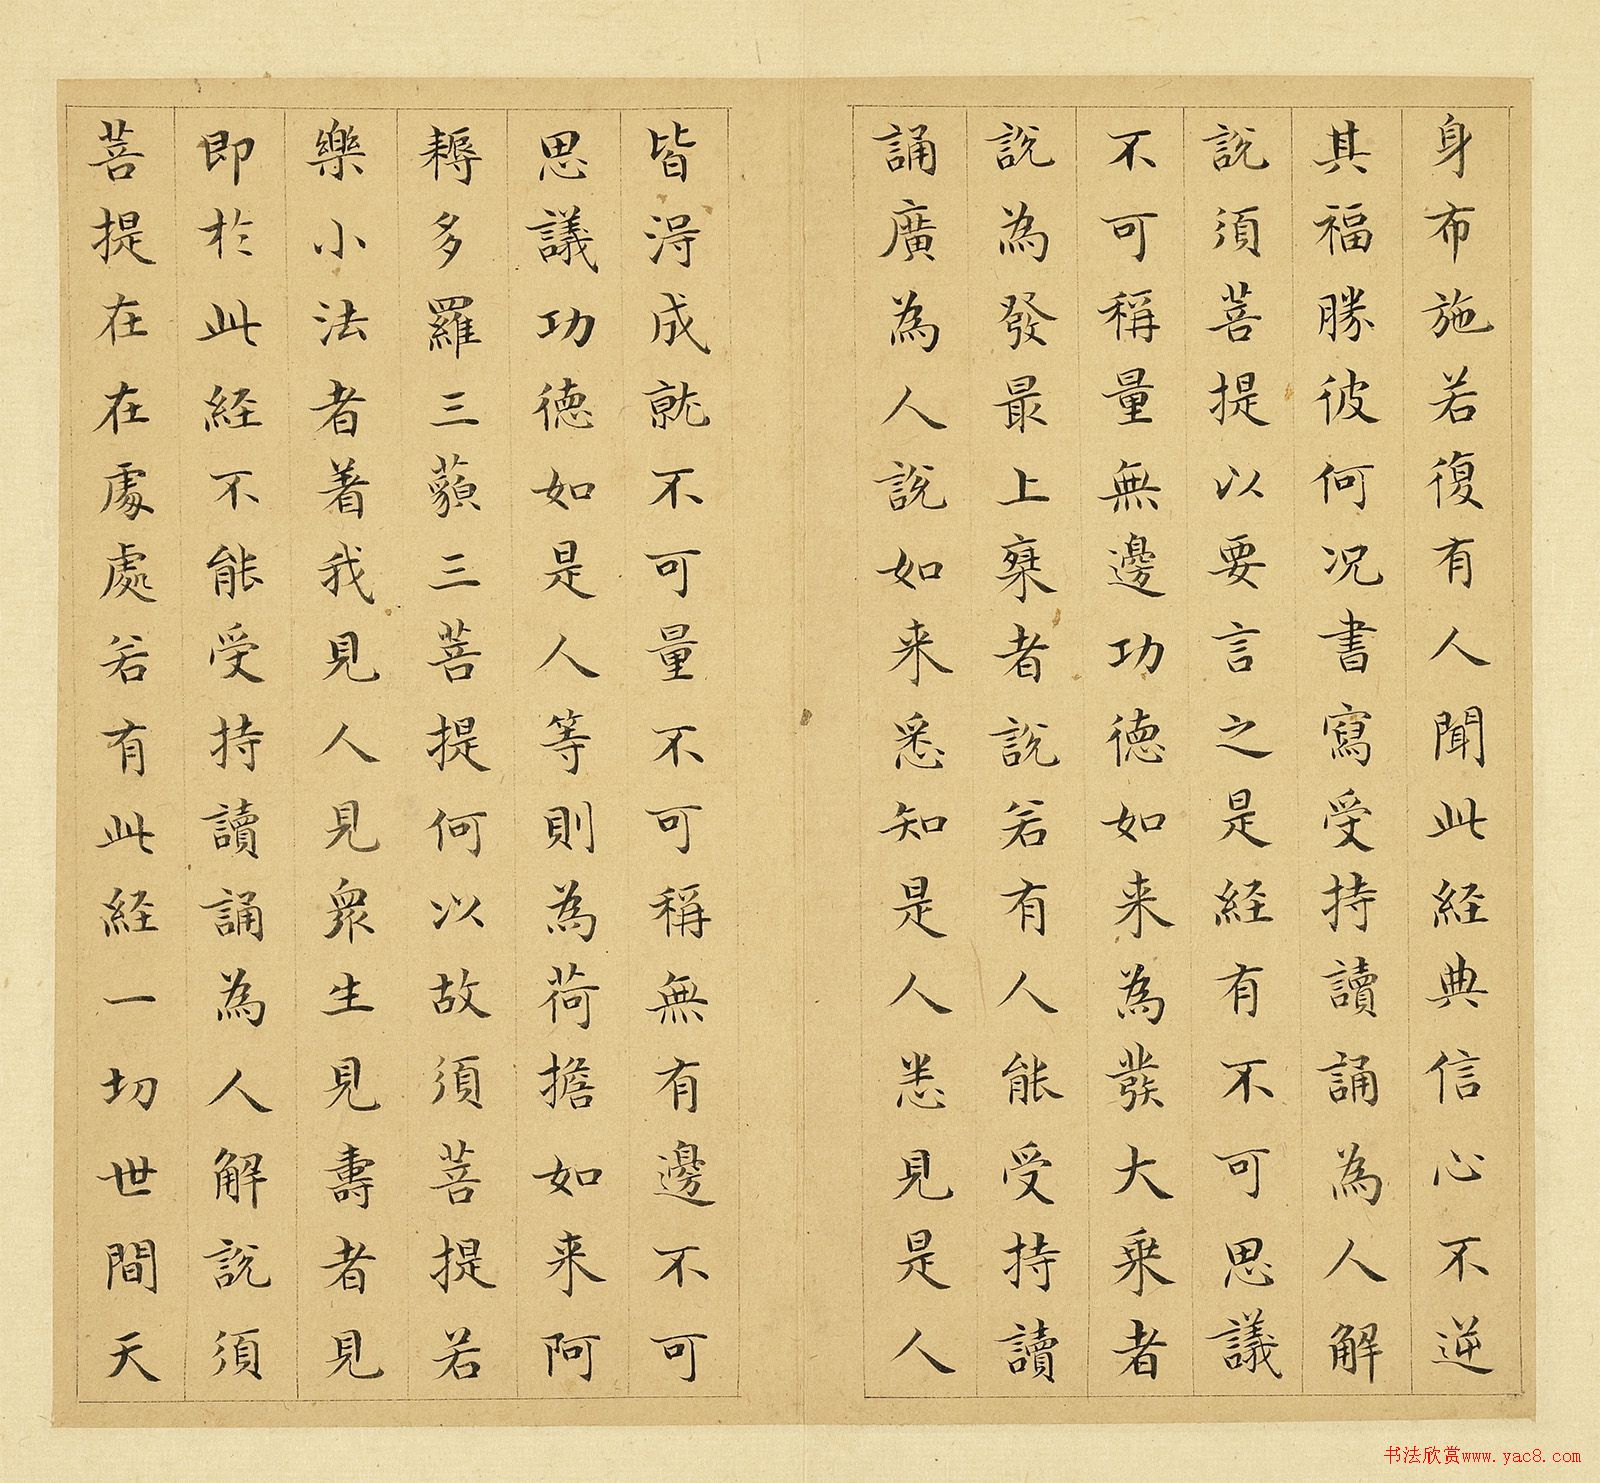 身布施若復有人聞此経典信心不逆
其福勝彼何况書寫受持讀誦為人解
說須菩提以要言之是経有不可思議
不可稱量無邊功德如来為發大乗者
說為發最上乗者說若有人能受持讀
誦廣為人說如来悉知是人悉見是人
皆淂成就不可量不可稱無有邊不可
思議功德如是人等則為荷擔如来阿
耨多羅三藐三菩提何以故須菩提若
樂小法者著我見人見衆生見壽者見
即於此経不能受持讀誦為人解說須
菩提在在處處若有此経一切世間天
书法欣赏www.yac8.com